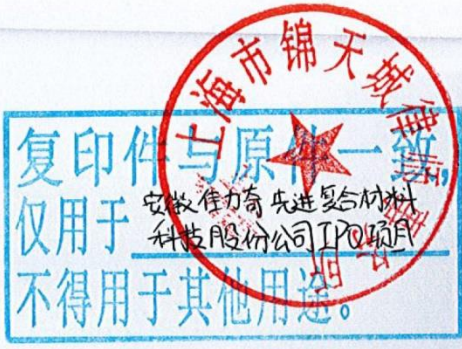 上海市锦天城律师事务所
复印件与原件一致,
仅用于安徽佳力奇先进复合材料
科技股份公司IPO项目
不得用于其他用途。